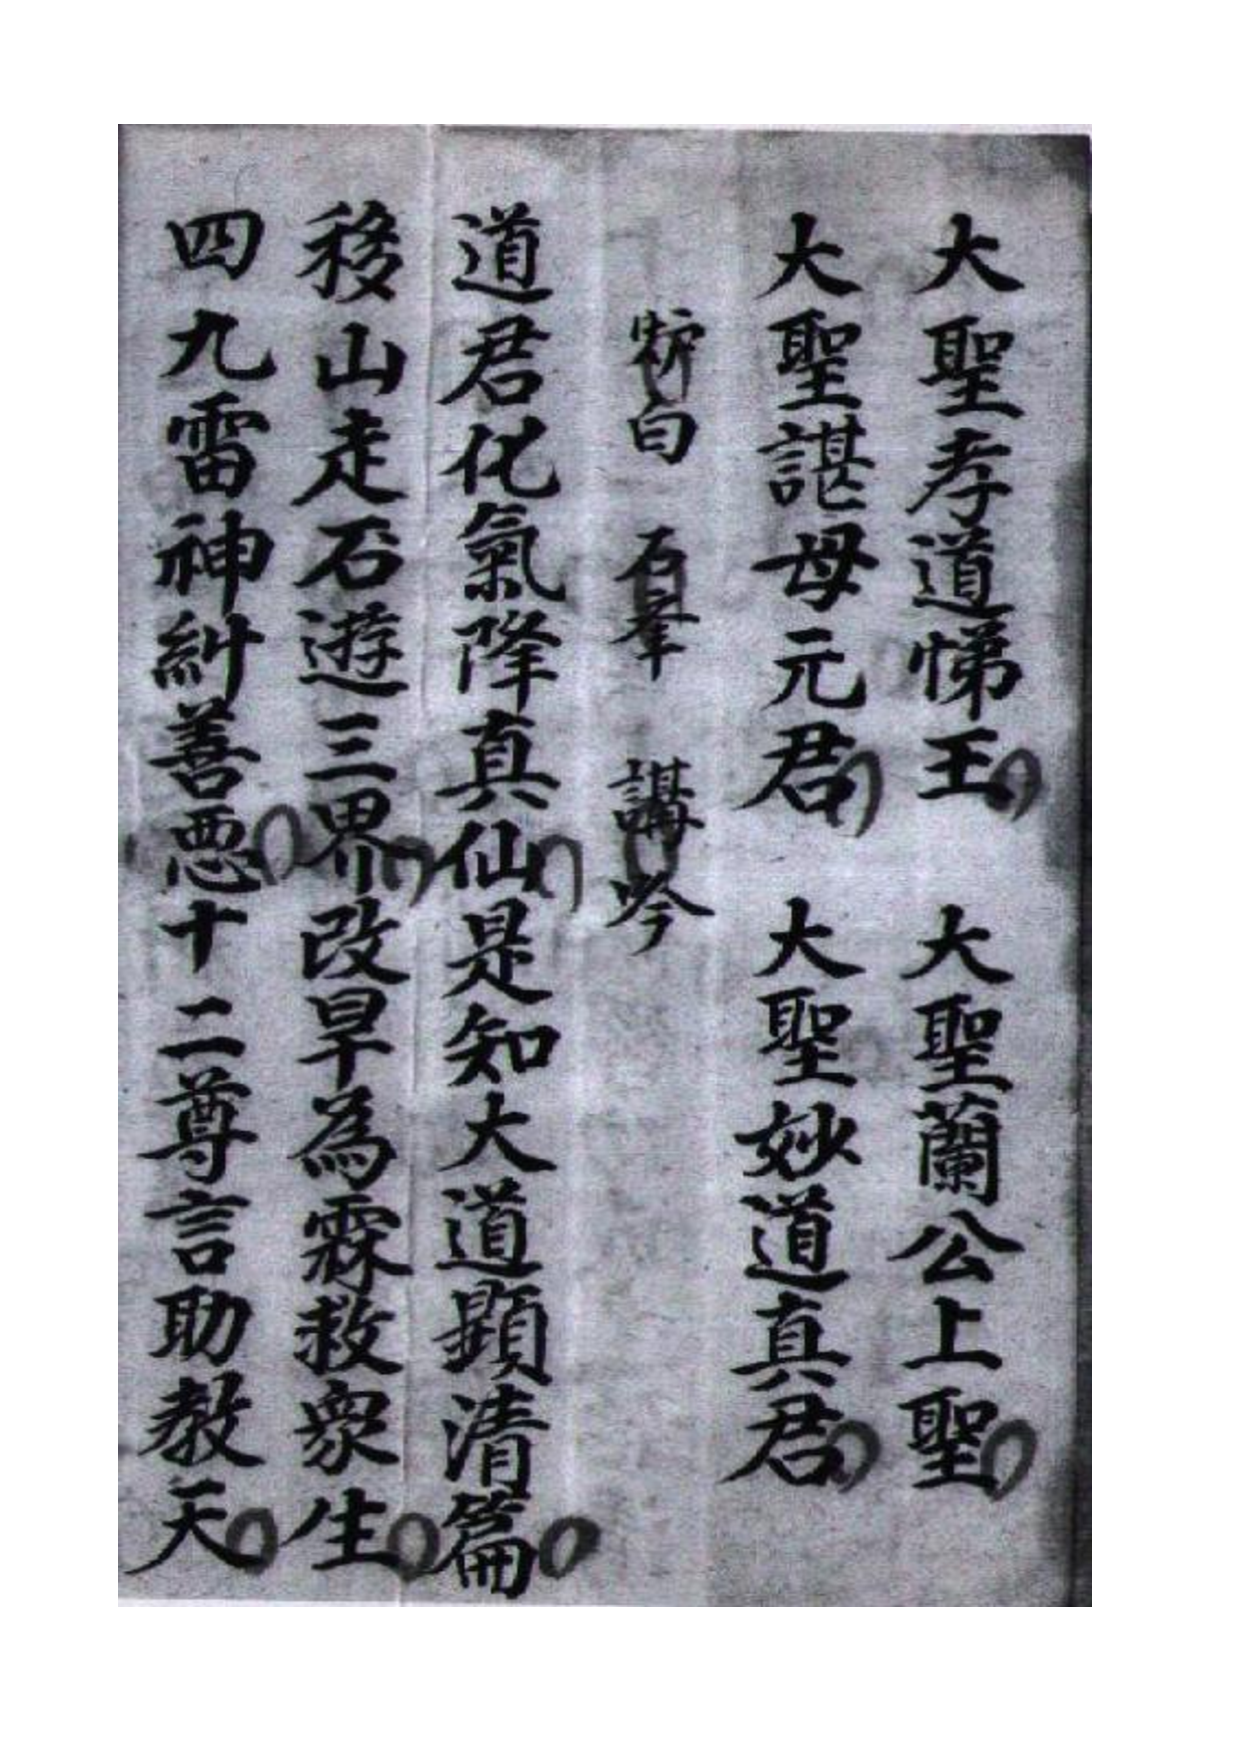 大聖孝道悌王　大聖蘭公上聖
大聖諶母元君　大聖妙道真君
白　石　羣　講　吟
道君化氣降真仙是知大道顕清篇
移山走石遊三界改旱為霖救衆生
四九雷神糾善悪十二尊言助教天